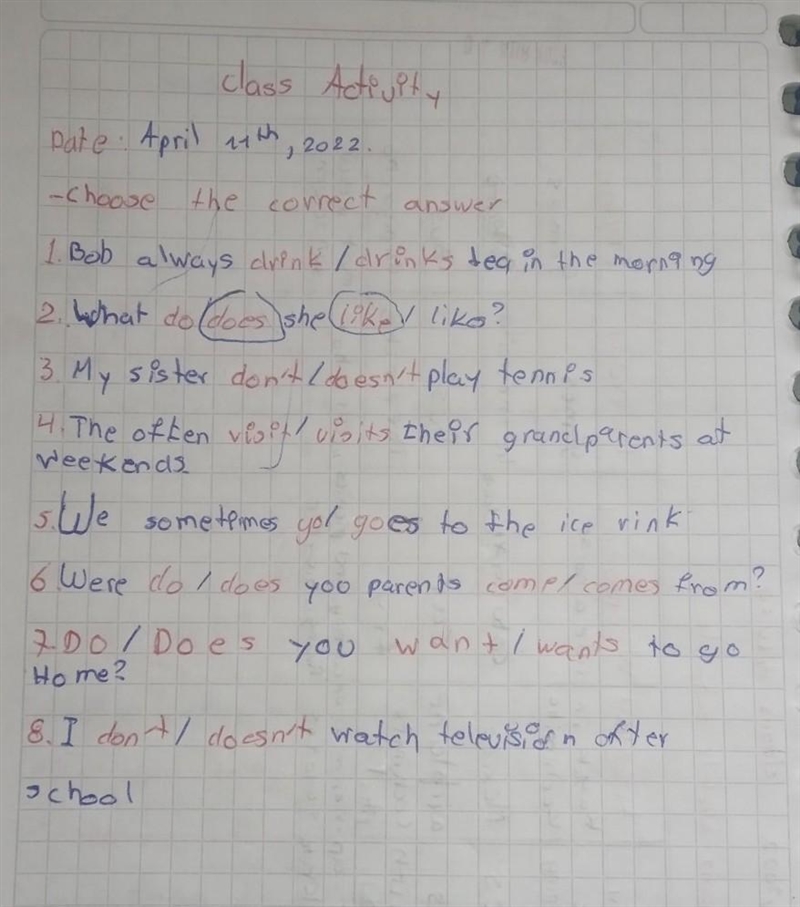 Class Activity
Date: April 11th, 2022.
-Choose the correct answer
1. Bob always drink / drinks tea in the morning
2. What do does she like / like?
3. My sister don't / doesn't play tennis
4. The often visit / visits their grandparents at
weekends
5. We sometimes go / goes to the ice rink
6 Were do / does you parents come / comes from?
7 DO / Does you want / wants to go
Home?
8. I don't / doesn't watch television after
school